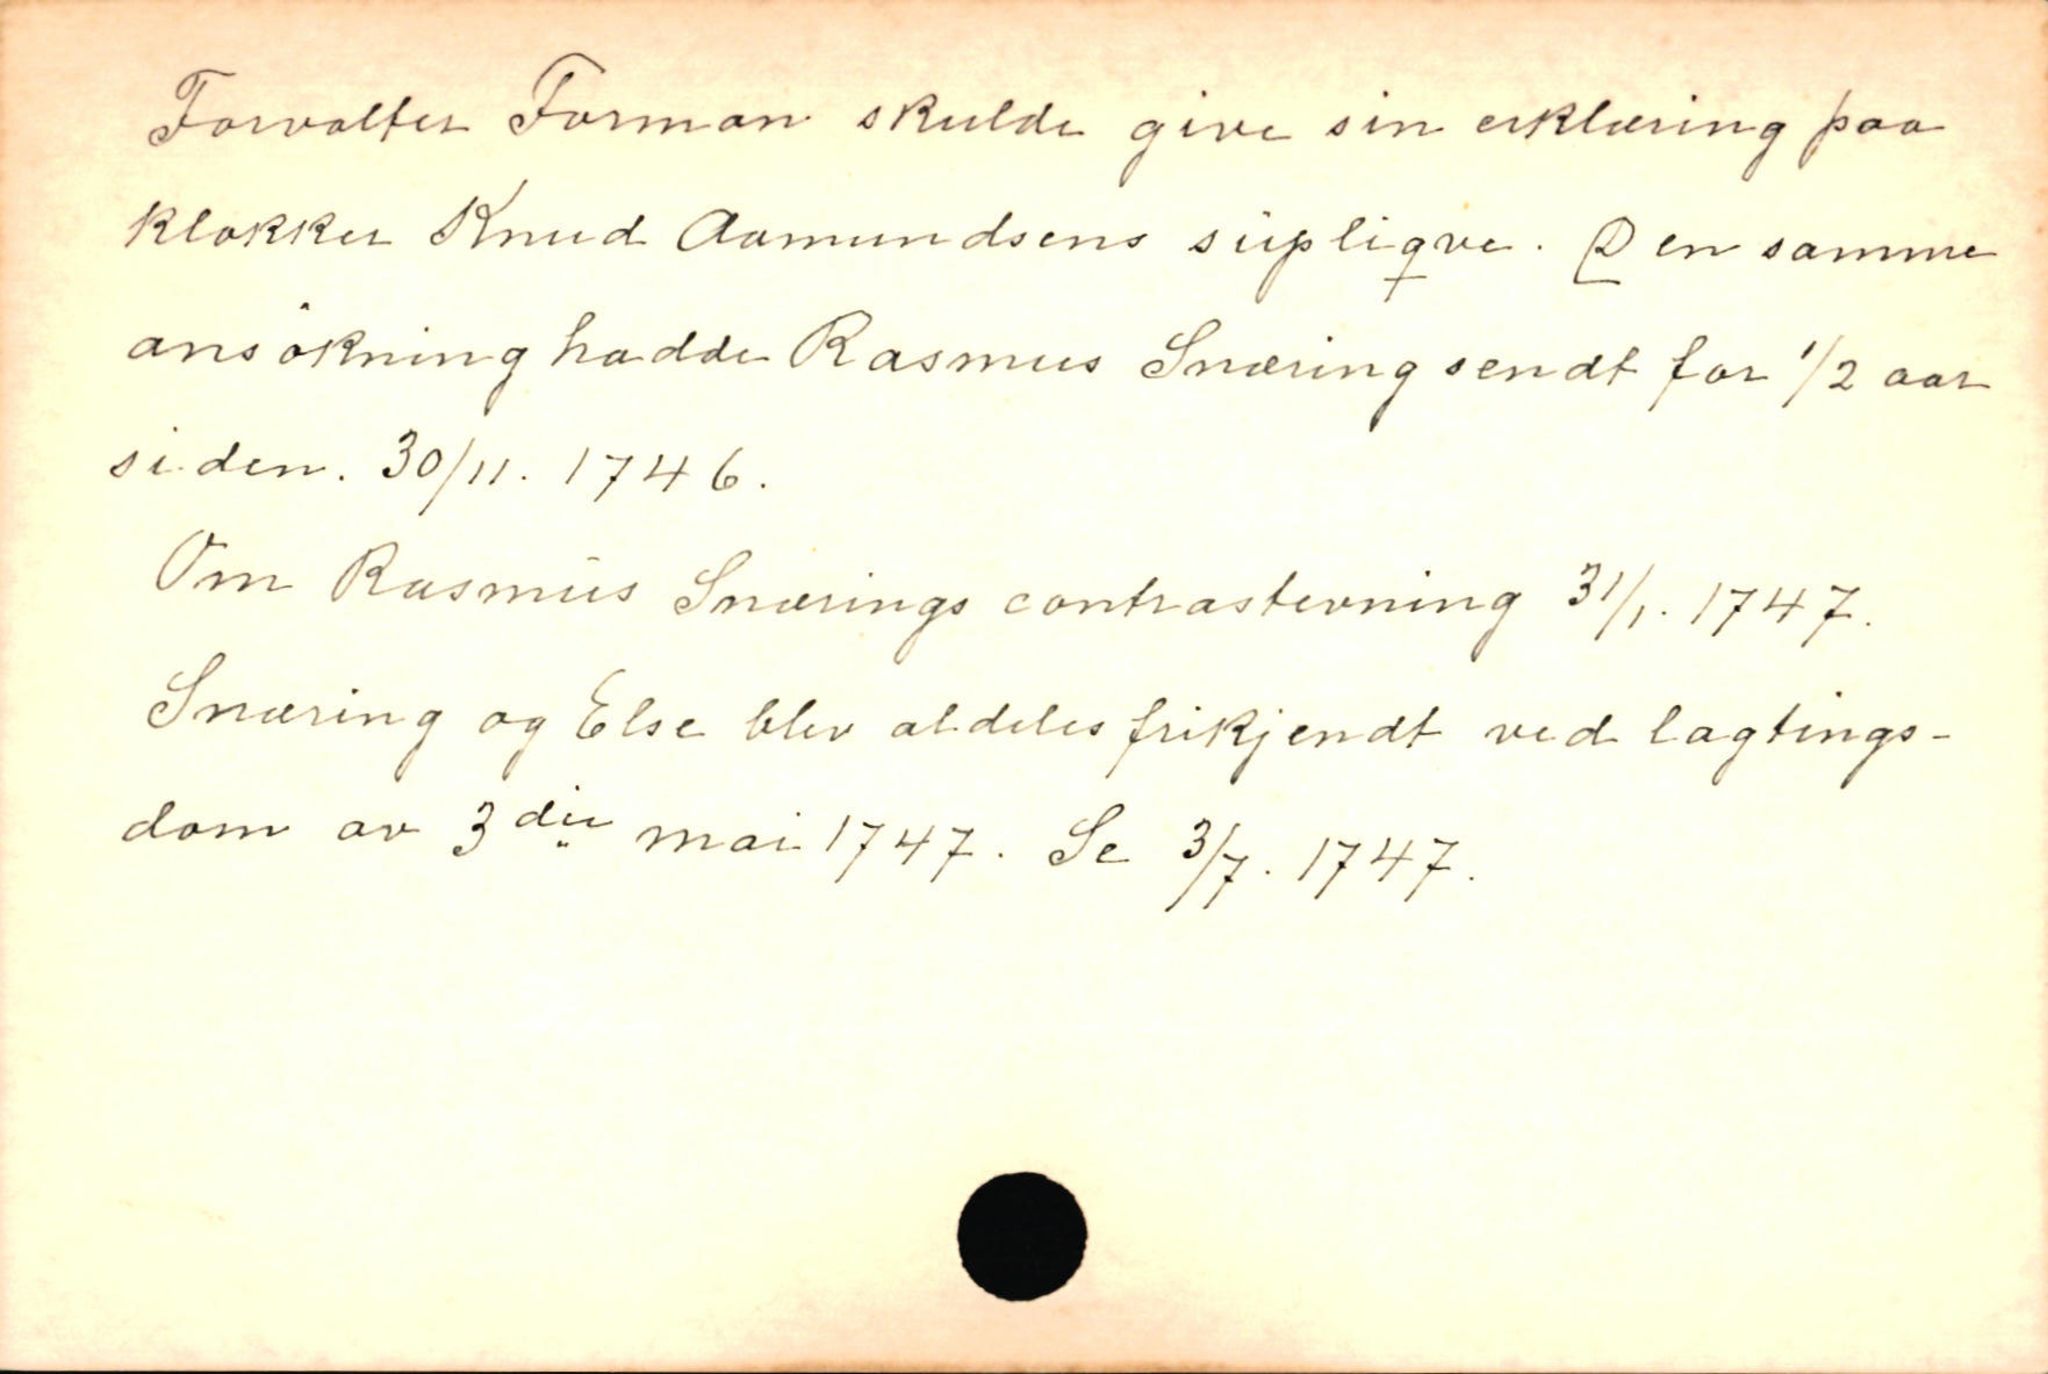 Forvalter Forman skulde give sin erklæring paa
klokker Knud Aamundsens süpliqve. Den samme
ansökning hadde Rasmus Snæring sendt for 1/2 aar
siden. 30/11. 1746.
Om Rasmüs Snærings contrastevning 31/1. 1747.
Snæring og Else blev aldeles frikjendt ved lagtings-
dom av 3die mai 1747. Se 3/7. 1747.